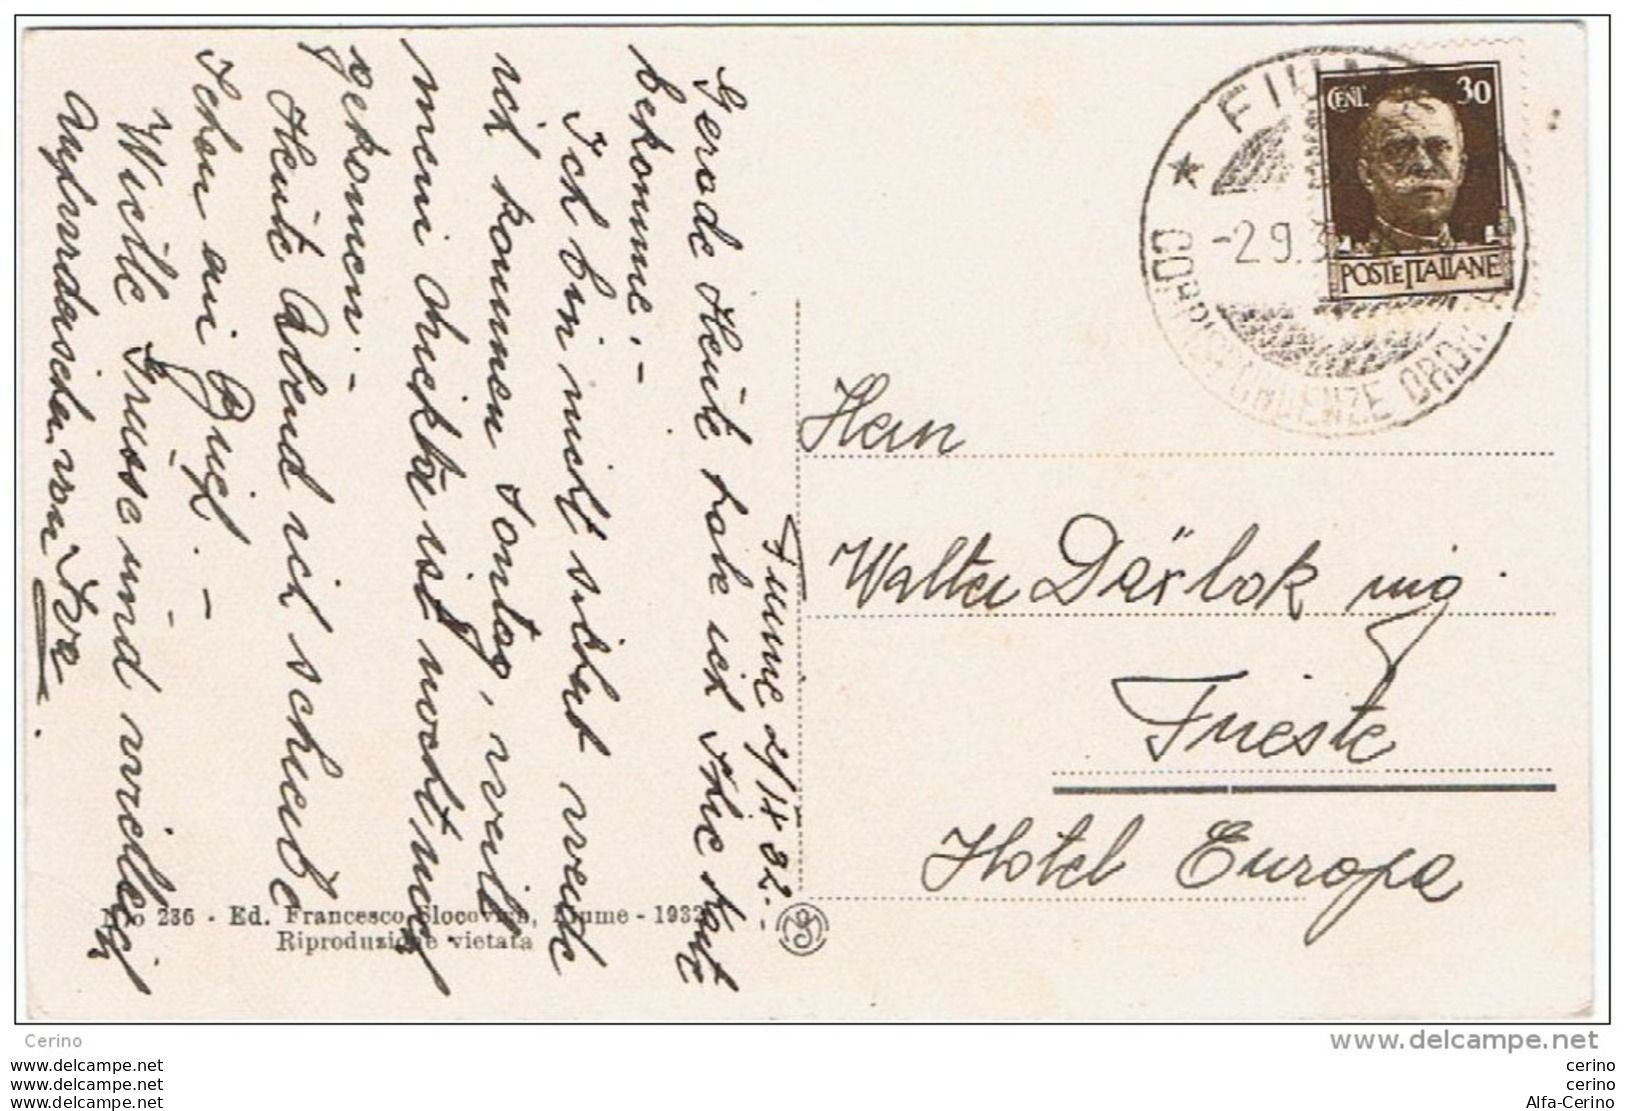 Fiume 2/IX 32.-
Gerade Heute habe ich Ihre Karte
bekomme.-
Ich bin nicht sicher werde
ich kommen Sontag, weil
meni ist nocht nich
gekomen-
Heute Abend ich schreibe
Ihen ein Brief.-
Viele Grüsse und vielleicht
Aufwidersehen von Iva.
No 236 - Ed. Francesco Slocovich, Fiume - 1932
Riproduzione vietata
FIUME
-2.9.3
CORRISPONDENZE ORDIN
CENT. 30
POSTE ITALIANE
Herrn
Walter ing.
Trieste
Hotel Europa
Cerino
www.delcampe.net
www.delcampe.net
www.delcampe.net
www.delcampe.net
cerino
cerino
Alfa-Cerino